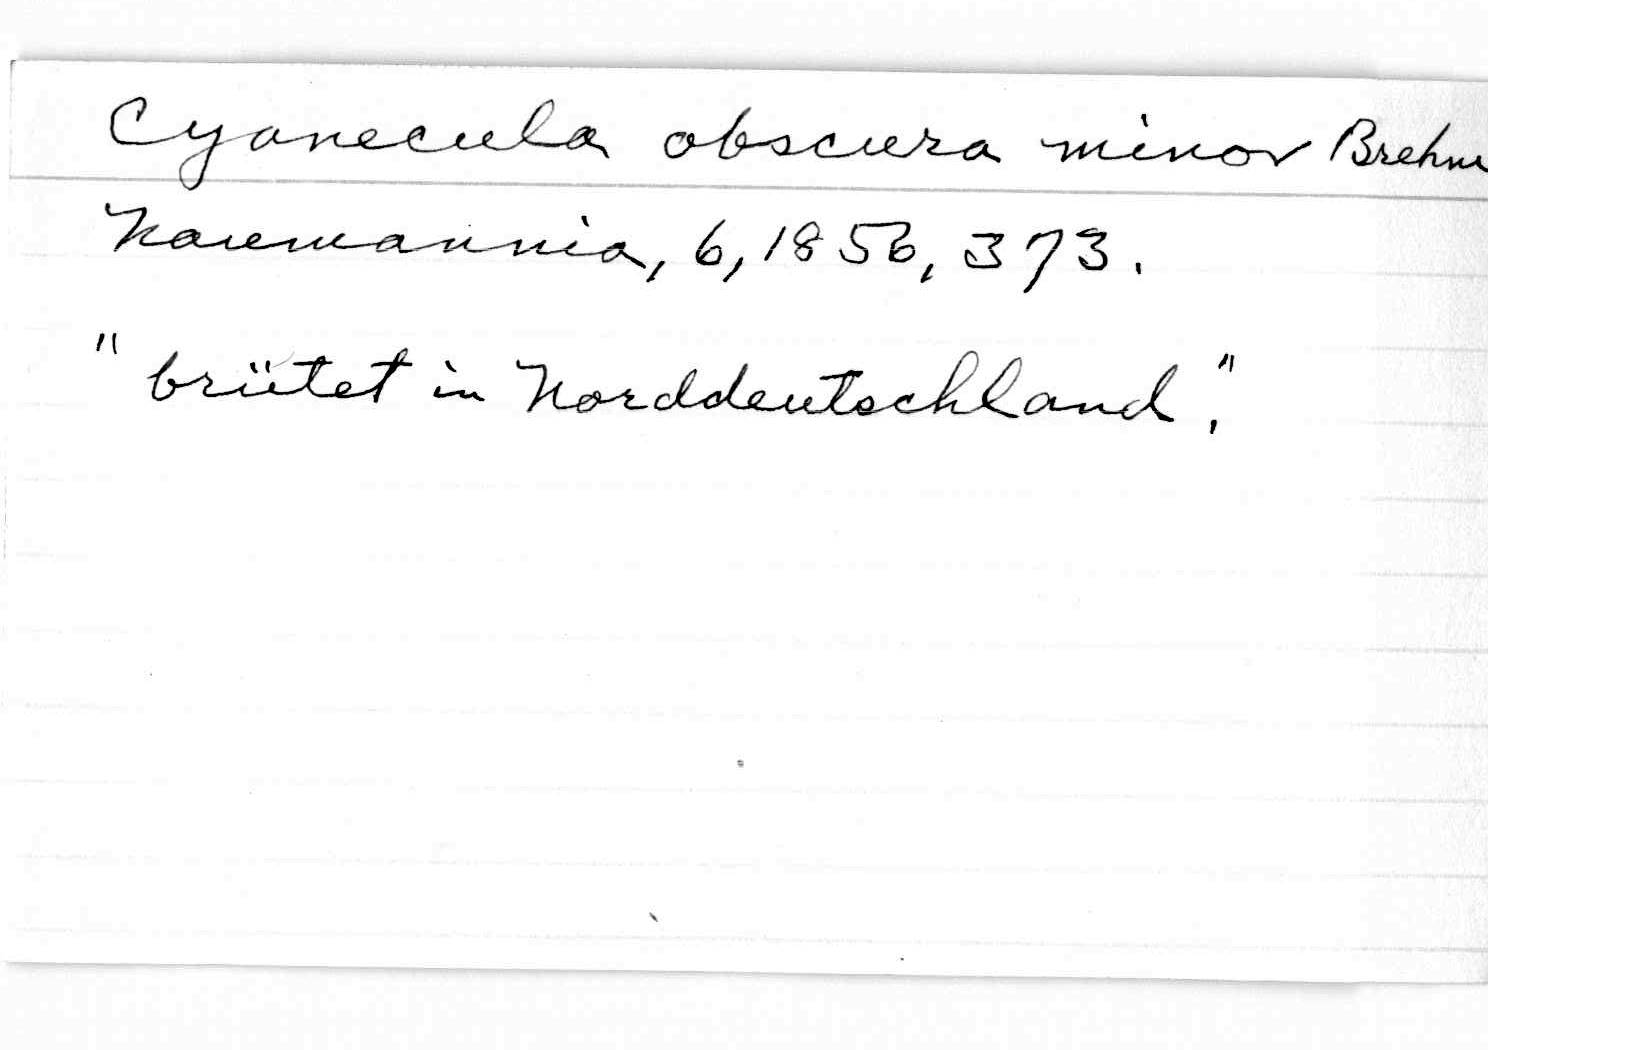 Cyanecula obscura minor Brehm
Naumannia, 6, 1856, 373.
"brütet in Norddeutschland".